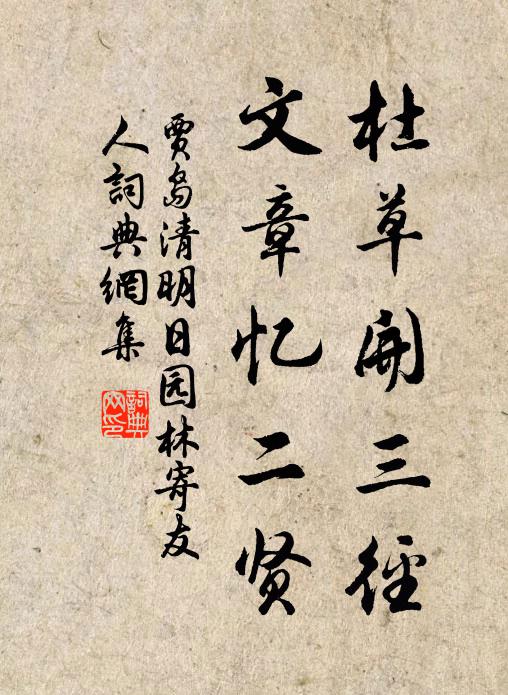 杜草開三徑
文章忆二贤
賈島清明日园林寄友
人詞典網集
詞典
网印